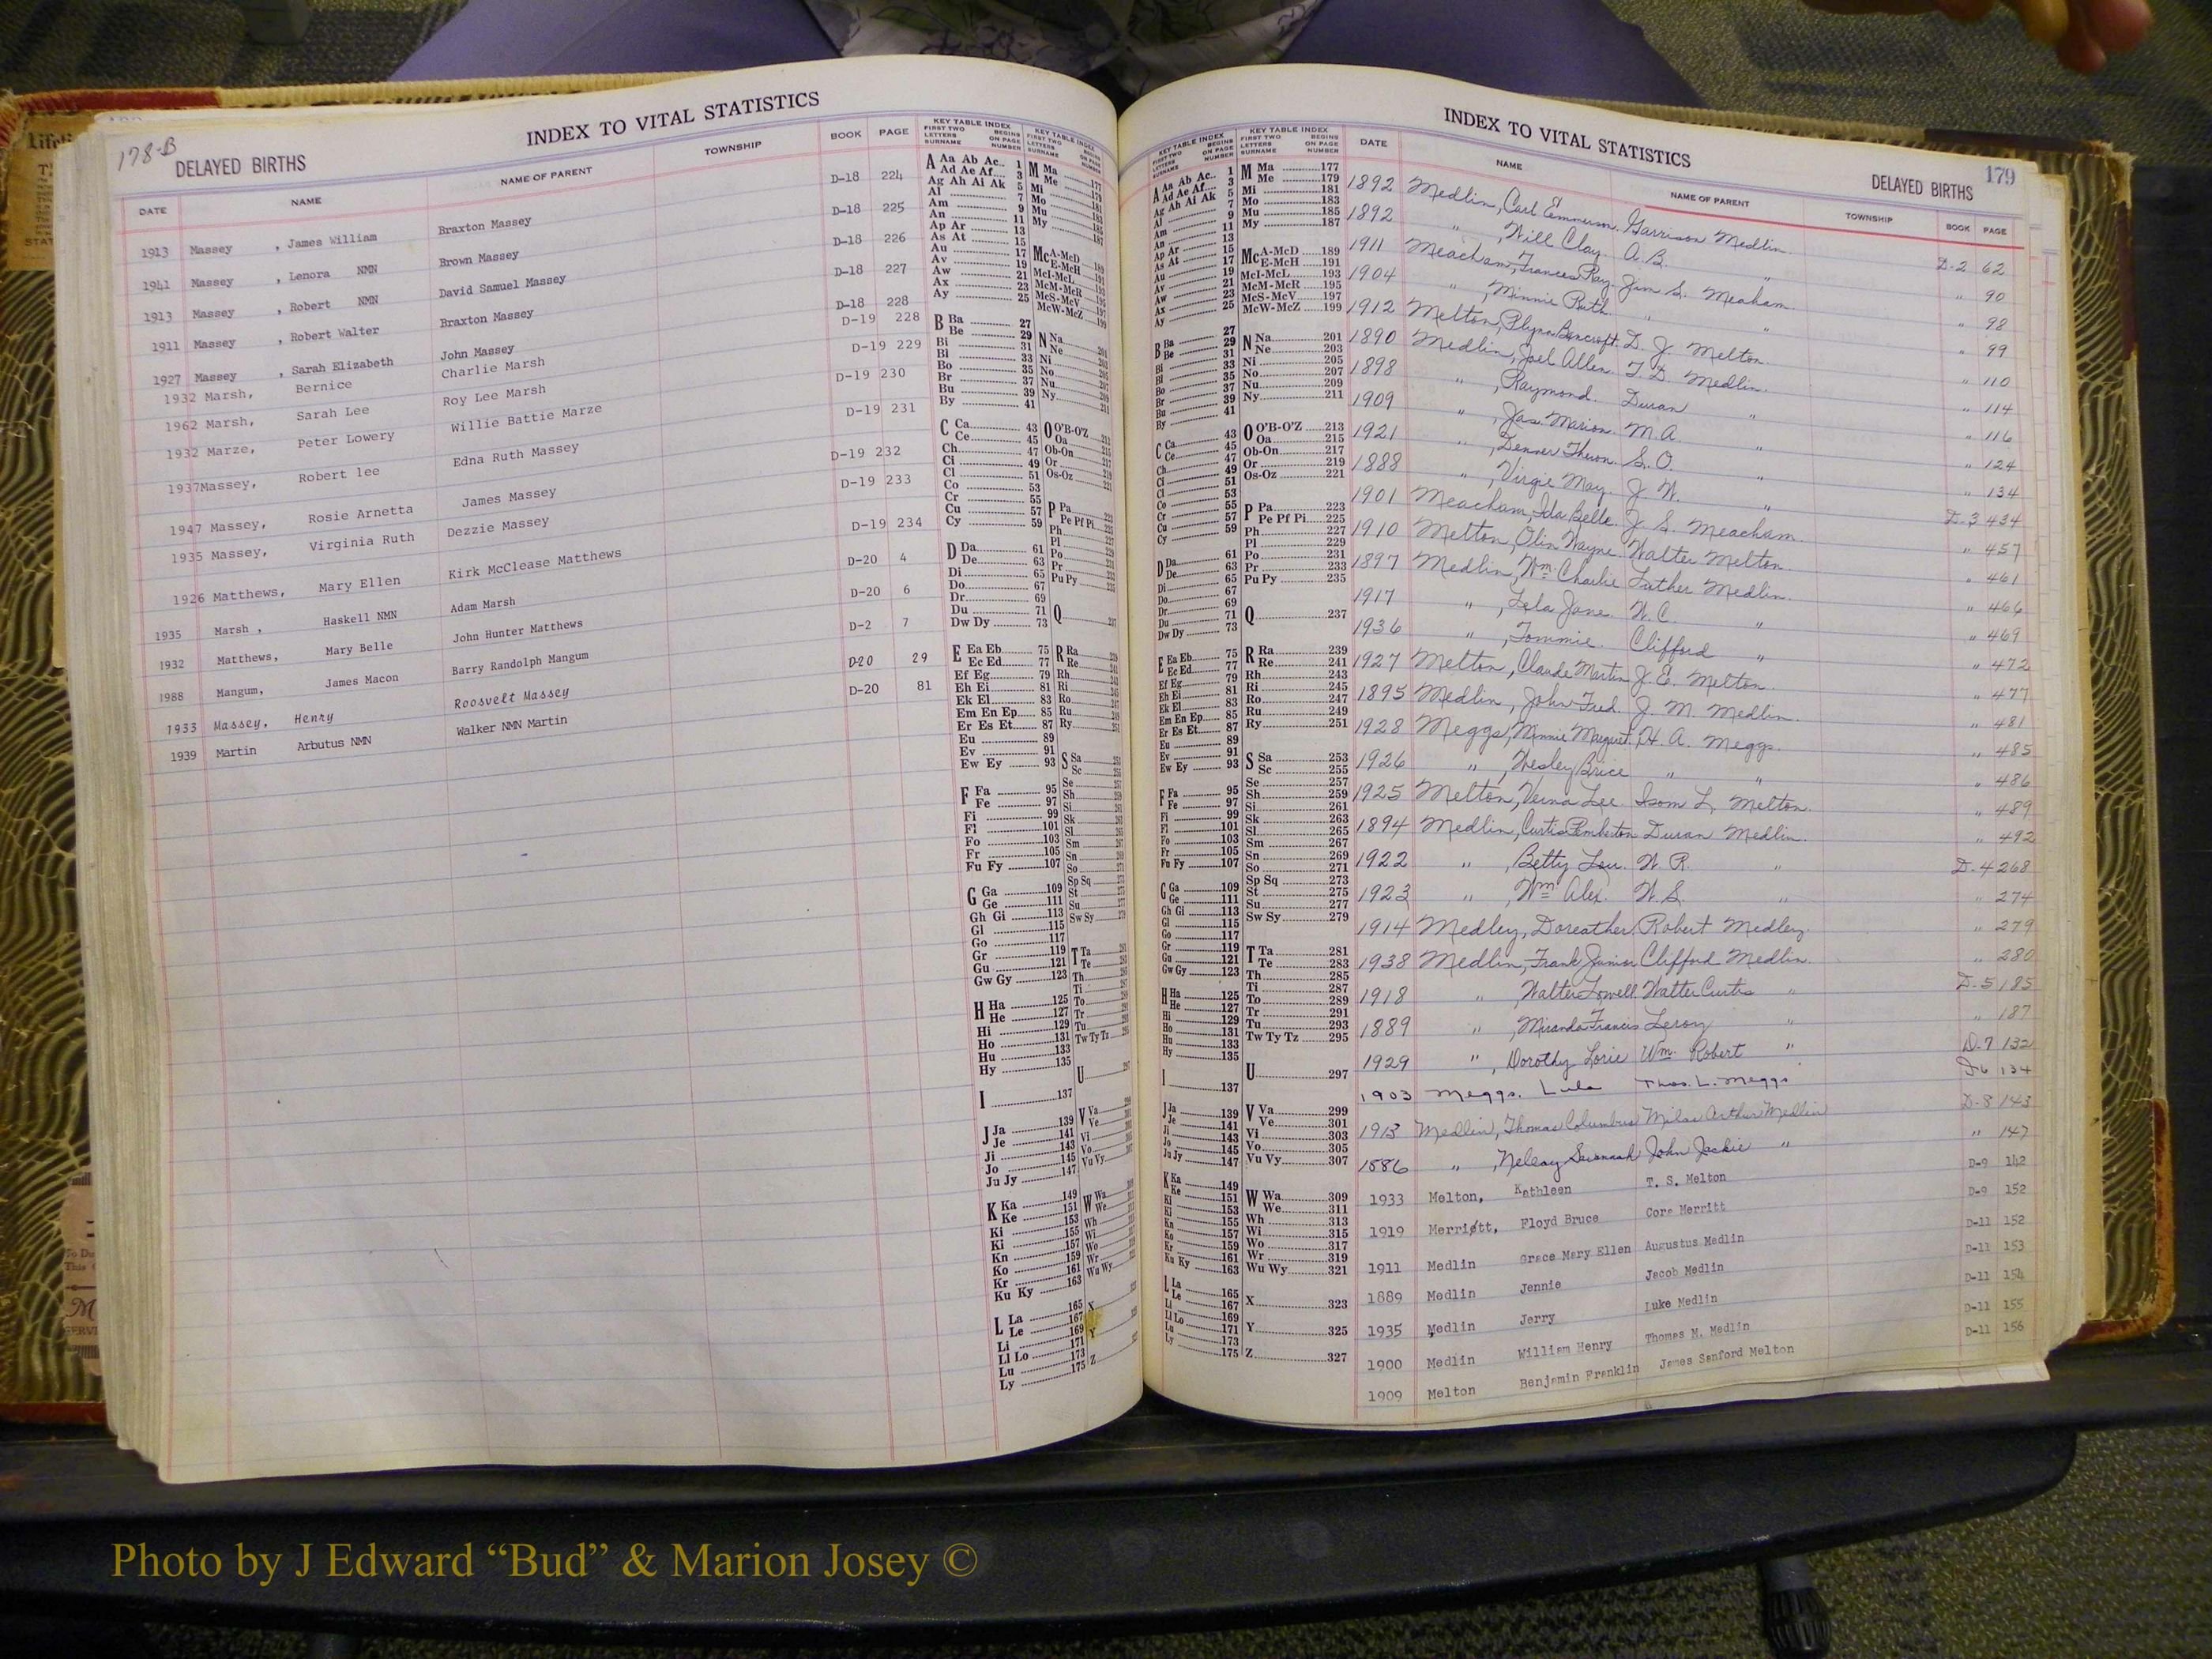 178-B
INDEX TO VITAL STATISTICS
DELAYED BIRTHS
DATE NAME NAME OF PARENT TOWNSHIP BOOK PAGE
1913 Massey , James William Braxton Massey D-18 224
1941 Massey , Lenora NMN Brown Massey D-18 225
1913 Massey , Robert NMN David Samuel Massey D-18 226
1911 Massey , Robert Walter Braxton Massey D-18 227
1927 Massey , Sarah Elizabeth John Massey D-18 228
1932 Marsh, Bernice Charlie Marsh D-19 228
1962 Marsh, Sarah Lee Roy Lee Marsh D-19 229
1932 Marze, Peter Lowery Willie Battie Marze D-19 230
1937Massey, Robert lee Edna Ruth Massey D-19 231
1947 Massey, Rosie Arnetta James Massey D-19 232
1935 Massey, Virginia Ruth Dezzie Massey D-19 233
1926 Matthews, Mary Ellen Kirk McClease Matthews D-19 234
1935 Marsh , Haskell NMN Adam Marsh D-20 4
1932 Matthews, Mary Belle John Hunter Matthews D-20 6
1988 Mangum, James Macon Barry Randolph Mangum D-2 7
1933 Massey, Henry Roosvelt Massey D-20 29
1939 Martin Arbutus NMN Walker NMN Martin D-20 81
KEY TABLE INDEX
FIRST TWO LETTERS SURNAME BEGINS ON PAGE NUMBER
A Aa Ab Ac.. 1
Ad Ae Af.... 3
Ag Ah Ai Ak 5
Al 7
Am 9
An 11
Ap Ar 13
As At 15
Au 17
Av 19
Aw 21
Ax 23
Ay 25
B Ba 27
Be 29
Bi 31
Bl 33
Bo 35
Br 37
Bu 39
By 41
C Ca 43
Ce 45
Ch 47
Ci 49
Cl 51
Co 53
Cr 55
Cu 57
Cy 59
D Da 61
De 63
Di 65
Do 67
Dr 69
Du 71
Dw Dy 73
E Ea Eb 75
Ec Ed 77
Ef Eg 79
Eh Ei 81
Ek El 83
Em En Ep 85
Er Es Et 87
Eu 89
Ev 91
Ew Ey 93
F Fa 95
Fe 97
Fi 99
Fl 101
Fo 103
Fr 105
Fu Fy 107
G Ga 109
Ge 111
Gh Gi 113
Gl 115
Go 117
Gr 119
Gu 121
Gw Gy 123
H Ha 125
He 127
Hi 129
Ho 131
Hu 133
Hy 135
I 137
J Ja 139
Je 141
Ji 143
Jo 145
Ju Jy 147
K Ka 149
Ke 151
Ki 153
Ki 155
Kn 157
Ko 159
Kr 161
Ku Ky 163
L La 165
Le 167
Li 169
Ll Lo 171
Lu 173
Ly 175
INDEX TO VITAL STATISTICS
DELAYED BIRTHS 179
KEY TABLE INDEX
FIRST TWO LETTERS SURNAME BEGINS ON PAGE NUMBER
M Ma 177
Me 179
Mi 181
Mo 183
Mu 185
My 187
Mc A-McD 189
E-McH 191
McI-McL 193
McM-McR 195
McS-McV 197
McW-McZ 199
N Na 201
Ne 203
Ni 205
No 207
Nu 209
Ny 211
O O'B-O'Z 213
Oa 215
Ob-On 217
Or 219
Os-Oz 221
P Pa 223
Pe Pf Pi 225
Ph 227
Pl 229
Po 231
Pr 233
Pu Py 235
Q 237
R Ra 239
Re 241
Rh 243
Ri 245
Ro 247
Ru 249
Ry 251
S Sa 253
Sc 255
Se 257
Sh 259
Si 261
Sk 263
Sl 265
Sm 267
Sn 269
So 271
Sp Sq 273
St 275
Su 277
Sw Sy 279
T Ta 281
Te 283
Th 285
Ti 287
To 289
Tr 291
Tu 293
Tw Ty Tz 295
U 297
V Va 299
Ve 301
Vi 303
Vo 305
Vu Vy 307
W Wa 309
We 311
Wh 313
Wi 315
Wo 317
Wr 319
Wu Wy 321
X 323
Y 325
Z 327
DATE NAME NAME OF PARENT TOWNSHIP BOOK PAGE
1892 Medlin, Carl Emmerson Garrison Medlin D-2 62
1892 " , Will Clay A. B. " " 90
1911 Meacham, Frances Ray Jim S. Meaham " 98
1904 " , Minnie Ruth " " " 99
1912 Melton, Bancroft D. J. Melton " 110
1890 Medlin, Joel Allen T. D. Medlin " 114
1898 " , Raymond Duran " " 116
1909 " , Jas. Marion M. A. " " 124
1921 " , Denver Theron S. O. " " 134
1888 " , Virgie May J. W. " D-3 434
1901 Meacham, Ida Belle J. S. Meacham " 457
1910 Melton, Olin Wayne Walter Melton " 461
1897 Medlin, Wm. Charlie Luther Medlin " 466
1917 " , Lela Jane W. C. " " 469
1936 " , Tommie Clifford " " 472
1927 Melton, Claude Martin J. E. Melton " 477
1895 Medlin, John Fred J. M. Medlin " 481
1928 Meggs, Minnie Margaret H. A. Meggs " 485
1926 " , Wesley Brice " " " 486
1925 Melton, Verna Lee Isom L. Melton " 489
1894 Medlin, Curtis Pemberton Duran Medlin " 492
1922 " , Betty Lou W. R. " D-4 268
1923 " , Wm Alex. W. S. " " 274
1914 Medley, Doreather Robert Medley " 279
1938 Medlin, Frank Junior Clifford Medlin " 280
1918 " , Walter Lowell Walter Curtis " D-5 185
1889 " , Miranda Francis Leroy " " 187
1929 " , Dorothy Lorie Wm. Robert " D-7 132
1903 Meggs, Lula Thos. L. Meggs 134
1913 Medlin, Thomas Columbus Milas Arthur Medlin D-8 143
1886 " , Savannah John Jackie " " 147
1933 Melton, Kathleen T. S. Melton D-9 142
1919 Merriøtt, Floyd Bruce Cora Merritt D-9 152
1911 Medlin Grace Mary Ellen Augustus Medlin D-11 152
1889 Medlin Jennie Jacob Medlin D-11 153
1935 Medlin Jerry Luke Medlin D-11 154
1900 Medlin William Henry Thomas M. Medlin D-11 155
1909 Melton Benjamin Franklin James Sanford Melton D-11 156
Photo by J Edward “Bud” & Marion Josey ©